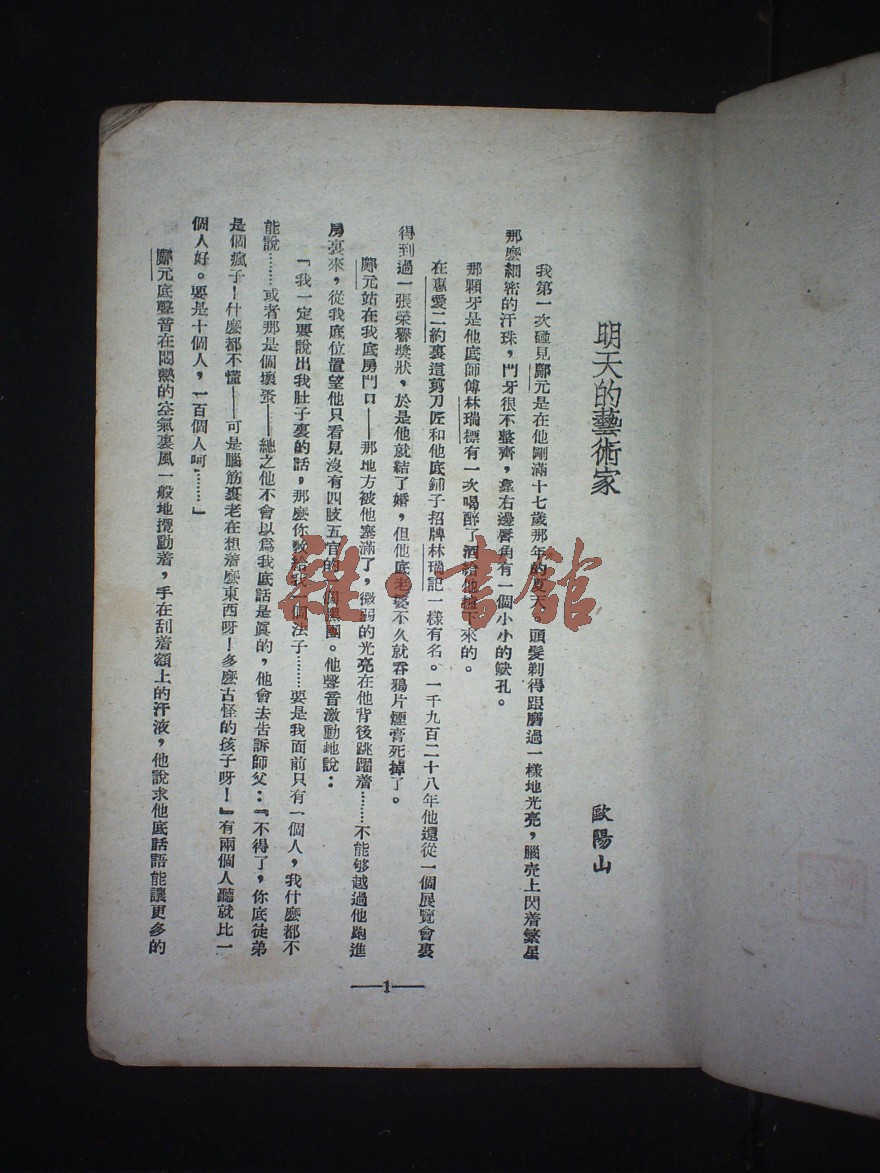 明天的藝術家
歐陽山
我第一次碰見鄺元是在他剛滿十七歲那年的夏天。頭髮剃得跟磨過一樣地光亮，腦壳上閃着繁星
那麽細密的汗珠，門牙很不整齊，靠右邊唇角有一個小小的缺孔。
那顆牙是他底師傅林瑞標有一次喝醉了酒給他搥下來的。
在惠愛二約裏這剪刀匠和他底鋪子招牌林瑞記一樣有名。一千九百二十八年他還從一個展覽會裏
得到過一張榮譽獎狀，於是他就結了婚，但他底老婆不久就吞鴉片煙膏死掉了。
鄺元站在我底房門口——那地方被他塞滿了，微弱的光亮在他背後跳躍着……不能够越過他跑進
房裏來，從我底位置望他只看見沒有四肢五官的一個黑團。他聲音激動地說：
「我一定要說出我肚子裏的話，那麽你敎給我一個法子……要是我面前只有一個人，我什麽都不
能說……或者那是個壞蛋——總之他不會以爲我底話是眞的，他會去告訴師父：『不得了，你底徒弟
是個瘋子！什麽都不懂——可是腦筋裏老在想着麽東西呀！多麽古怪的孩子呀！』有兩個人聽就比一
個人好。要是十個人，一百個人呵……」
鄺元底聲音在悶熱的空氣裏風一般地攪動着，手在刮着額上的汗液，他說求他底話語能讓更多的
1
雜·書館